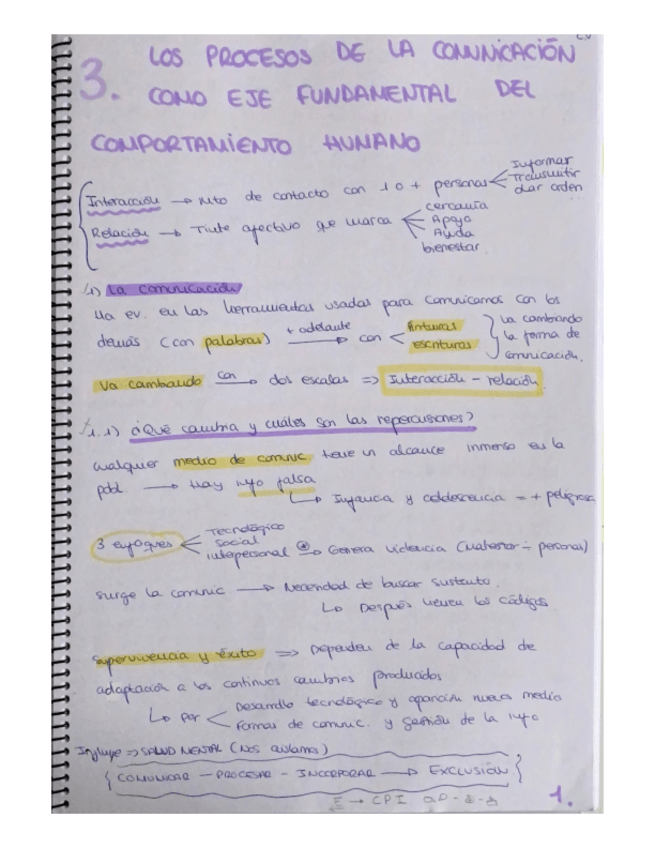 C.V
3. LOS PROCESOS DE LA COMUNICACIÓN
COMO EJE FUNDAMENTAL DEL
COMPORTAMIENTO HUMANO
Informar
Interacción → de contacto con 1 o + personas Transmitir
dar orden
cercanía
Relación → Tinte afectivo que marca Apoyo
Ayuda
bienestar
1) La comunicación
Ha ev. en las herramientas usadas para comunicarnos con los
demás (con palabras) + adelante → con pinturas escrituras } va cambiando la forma de comunicación.
Va cambiando con → dos escalas ⇒ Interacción - relación
1.1) ¿Qué cambia y cuáles son las repercusiones?
cualquier medio de comunic tiene un alcance inmenso en la
pobl. → Hay info falsa
↳ Infancia y adolescencia = + peligrosa
Tecnológico
3 enfoques social
interpersonal → Genera violencia (personas)
surge la comunic → Necesidad de buscar sustento.
↳ Después vienen los códigos
Supervivencia y éxito ⇒ Dependen de la capacidad de
adaptación a los continuos cambios producidos
↳ por Desarrollo tecnológico y aparición nuevos medios
Formas de comunic. y gestión de la info
Influye ⇒ SALUD MENTAL (Nos aislamos)
{ COMUNICAR - PROCESAR - INCORPORAR → EXCLUSIÓN }
E → CPI
1.